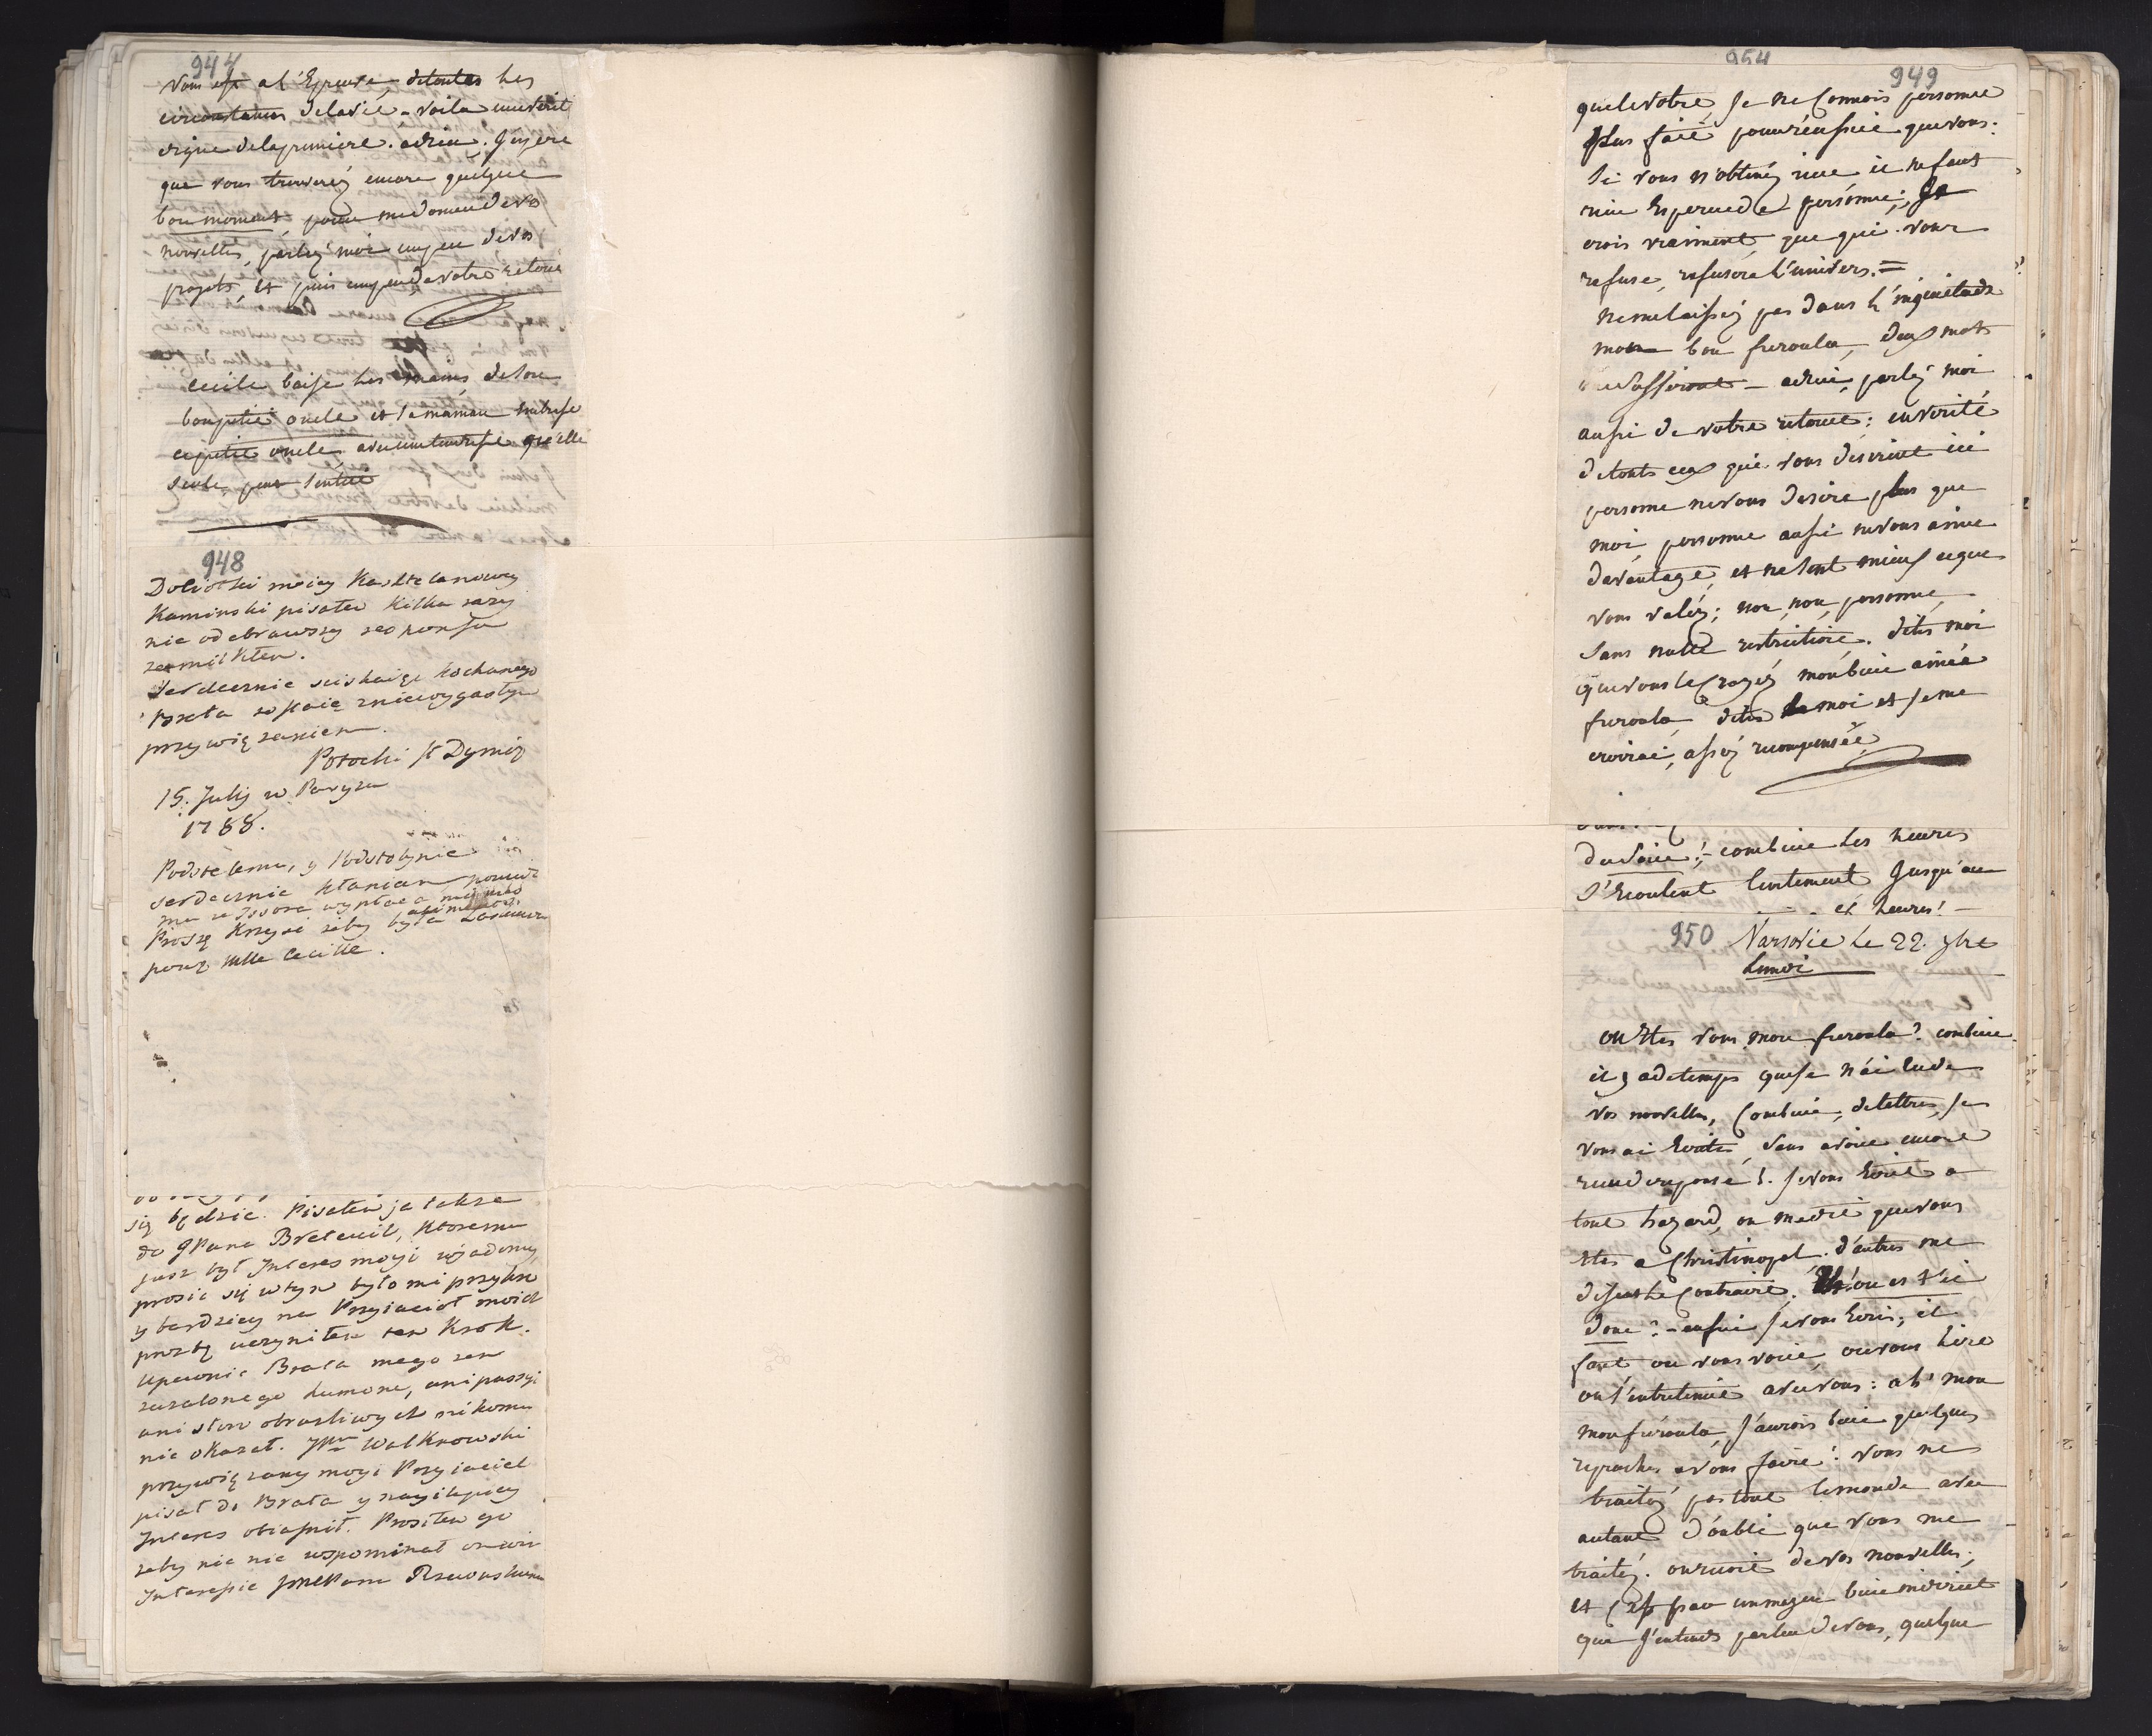 944
vous est a l'Epreuve, detoutes les
circonstances delavie - voila une verité
digne delapremiere. adieu. J'espere
que vous trouverés encore quelque
bon moment, pour medonner de vos
nouvelles, parlés moi unpeu devos
projets, et puis unpeu de votre retour
Cecile baise les mains deson
bonpetit oncle et la maman embrasse
cepetit oncle avec une tendresse qu'elle
seule peut sentir
948
Kaminski pisałem kilka razy
nie odebrawszy responsu
zamilkłem.
Serdecznie sciskaiąc kochanego
Brata zostaię z niewygasłym
przywiązaniem.
Potocki
15. Julij w Paryzu
1788.
Podstolemu, y Podstolynie
serdecznie kłaniam
Proszę Krzysi zeby była
Mlle Cecille.
się będzie. Pisałem ja także
do JPana Breteuil, ktoremu
jusz był Interes moyi wiadomy
prosic się w tym było mi przykro
y bardziey na Przyiacioł moich
prozbę uczyniłem ten krok.
Upewnic Brata mego zem
zuzalonego humoru, ani passyi
ani słow obrazliwych nikomu
nie okazał. JPan Walknowski
przywiązany moyi Przyiaciel
pisał do Brata y nayilepiey
Interes obiasnił. Prosiłem go
zeby nic nie wspominał o
Interessie JmcPana Rzewuskiemu
954
949
quelevotre, Je ne Connois personne
plus fait pour réussir quevous.
Si vous n'obtenés rien il nefaut
rien Esperer de personne; Je
crois vraiment que qui vous
refuse, refusera l'univers. =
nemelaissés pas dans l'inquietude
mon bon furoula, deux mots
me suffiront - adieu, parlés moi
aussi de votre retour; enverité
detouts ceux qui vous desirent ici
personne nevous desire plus que
moi, personne aussi nevous aime
davantage, et ne sent mieux ceque
vous valés; non, non, personne,
sans nulle restriction. dites moi
quevous le Croyés mon bien aimée
furoula, dites le moi et Je me
croirai, assés recompensée
duSoir! - combien les heures
s'écoulent lentement Jusqu'au
et heures! -
950 Varsovie le 22. 9bre
Lundi
ou Etes vous mon furoula? combien
il y adetemps queje n'ai eu de
vos nouvelles, Combien, delettres, Je
vous ai Ecrites, sans avoir encore
recu de reponse!. Jevous Ecrit a
tout hazard, on medit quevous
etes a Christinopol. d'autres me
disent le Contraire. ou est t'il
donc? - enfin Jevous Ecris; il
faut ou vous voir, ouvous lire
ou s'entretenir avec vous: ah! mon
mon furoula, J'aurois bien quelques
reproches avous faire! vous ne
traités pas tout lemonde avec
autant d'oubli que vous me
traités. on recoit devos nouvelles,
et C'est par un moyen bien indirect
que J'entends parler devous, quelque